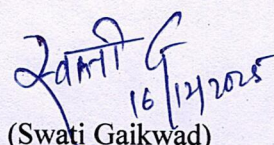 स्वाती G
16/12/2025
(Swati Gaikwad)